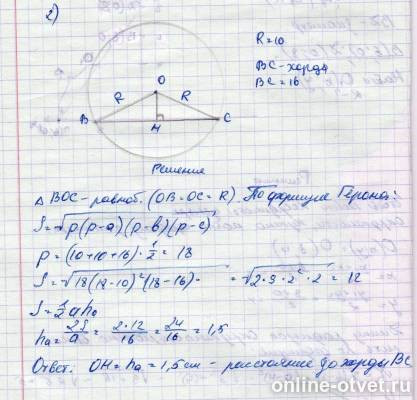 2)
R=10
BC - хорда
BC = 16
O
R R
B H C
Решение
△ BOC - равноб. (OB=OC=R). По формуле Герона:
S=√p(p-a)(p-b)(p-c)
p = (10+10+16)·1/2 = 18
S=√18(18-10)²(18-16) = √2·9·2²·2 = 12
S=1/2 a hₐ
hₐ = 2S/a = 2·12/16 = 24/16 = 1,5
Ответ. OH = hₐ = 1,5 см - расстояние до хорды BC
online-otvet.ru